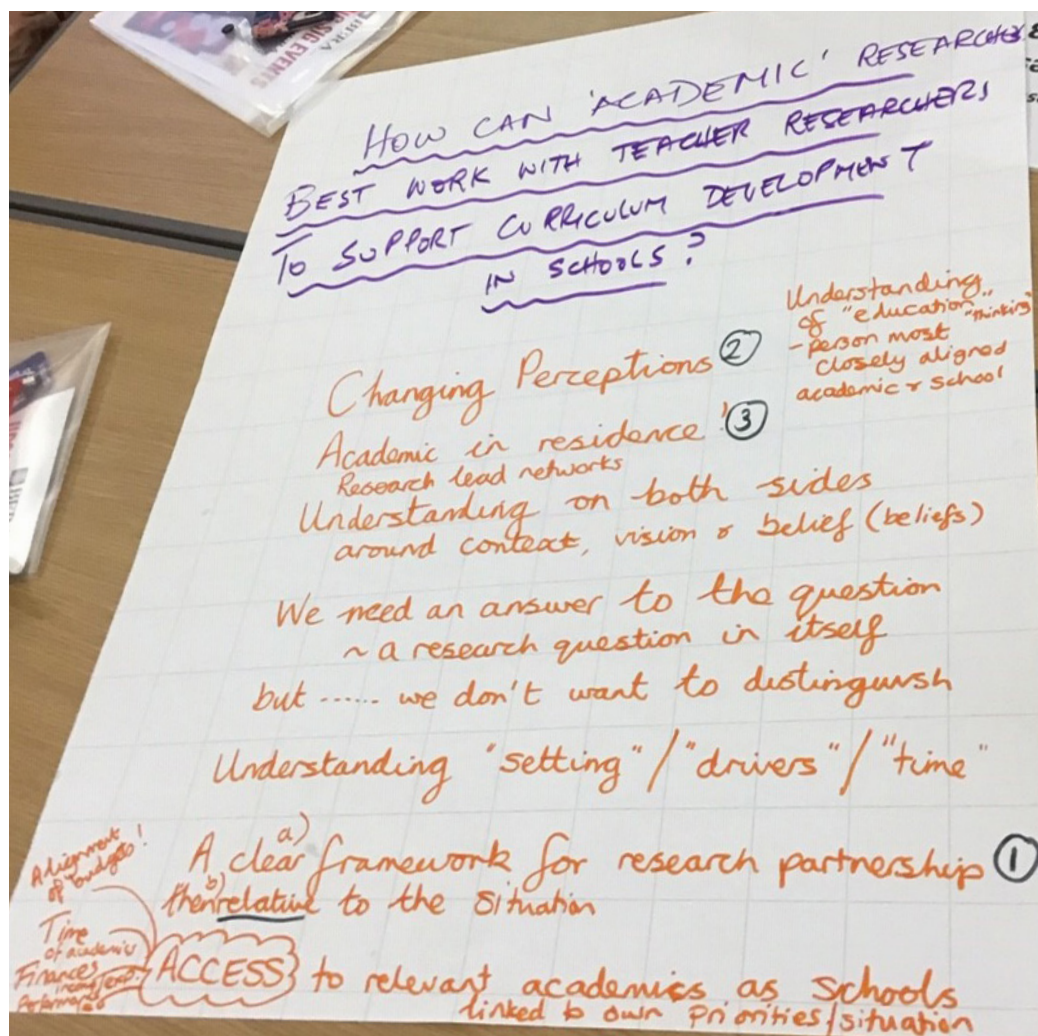 BERA
SIG EVENTS
HOW CAN 'ACADEMIC' RESEARCHERS
BEST WORK WITH TEACHER RESEARCHERS
TO SUPPORT CURRICULUM DEVELOPMENT
IN SCHOOLS?
Understanding
of "education"
"thinking"
- person most
closely aligned
academic & school
Changing Perceptions ②
Academic in residence! ③
Research lead networks
Understanding on both sides
around context, vision & belief (beliefs)
We need an answer to the question
~ a research question in itself
but ...... we don't want to distinguish
Understanding "setting" / "drivers" / "time"
a)
A clear framework for research partnership ①
b)
then relative to the situation
Alignment
of budgets!
Time
of academics
Finances
ACCESS to relevant academics as schools
linked to own priorities/situation